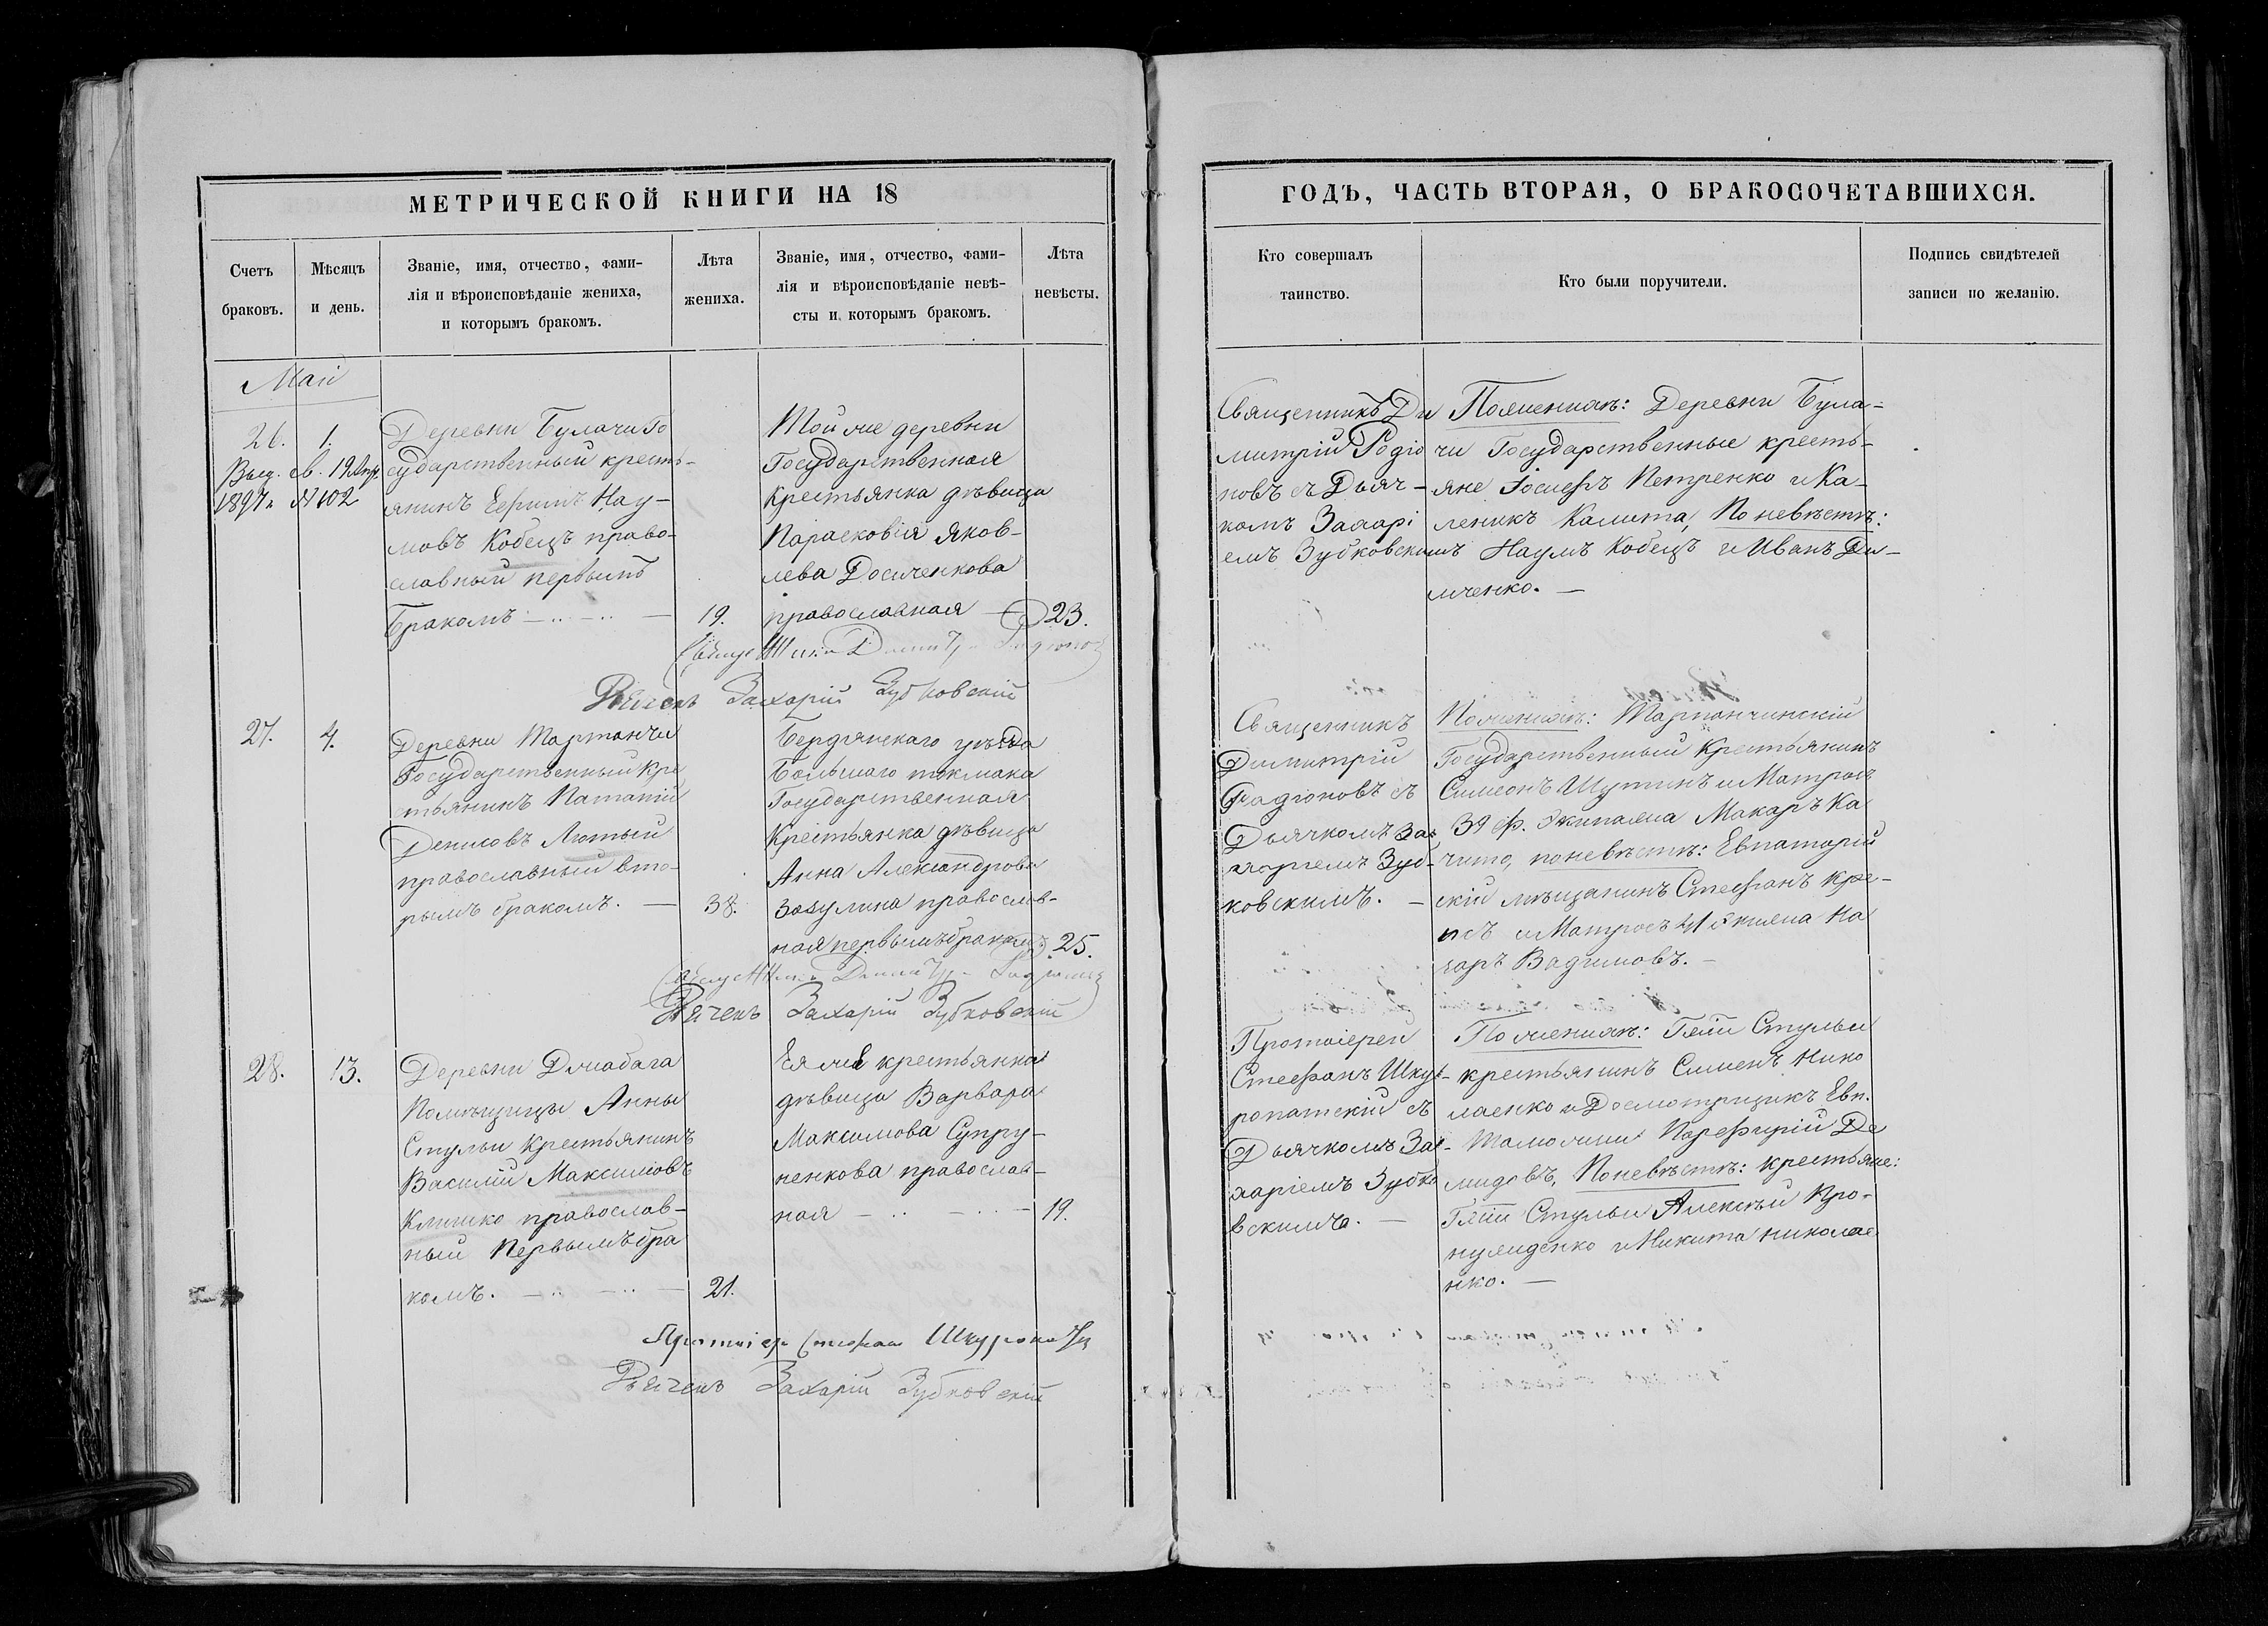 МЕТРИЧЕСКОЙ КНИГИ НА 18
Счетъ
браковъ.
Мѣсяцъ
и день.
Званіе, имя, отчество, фами-
лія и вѣроисповѣданіе жениха,
и которымъ бракомъ.
Лѣта
жениха.
Званіе, имя, отчество, фами-
лія и вѣроисповѣданіе невѣ-
сты и которымъ бракомъ.
Лѣта
невѣсты.
Май
26.
1.
Выд. св. 19 Апр.
1897 г. №102
Деревни Булачи Го
сударственный кресть-
янинъ Ефимъ Нау-
мовъ Кобецъ право-
славный первымъ
бракомъ
19.
Той же деревни
Государственная
крестьянка дѣвица
Парасковія Яков-
лева Досиченкова
православная
23.
Дьячекъ Захарій Зубковскій
27.
4.
Деревни Тарпанчи
Государственный кре
стьянинъ Ипатій
Денисовъ Лютый
православный вто-
рымъ бракомъ.
38.
Бердянскаго уѣзда
Большаго токмака
Государственная
Крестьянка дѣвица
Анна Александрова
Зозулина православ-
ная первымъ бракомъ
25.
Дьячекъ Захарій Зубковскій
28.
13.
Деревни Джабага
Помѣщицы Анны
Стульи крестьянинъ
Василій Максимовъ
Климко православ-
ный первымъ бра
комъ.
21.
Ея же крестьянка
дѣвица Варвара
Максимова Супру-
ненкова православ-
ная
19.
Протоіер Стефан Шкуропатскій
Дьячекъ Захарій Зубковскій
ГОДЪ, ЧАСТЬ ВТОРАЯ, О БРАКОСОЧЕТАВШИХСЯ.
Кто совершалъ
таинство.
Кто были поручители.
Подпись свидѣтелей
записи по желанію.
Священникъ Ди
митрій Родіо
новъ съ Дьяч-
комъ Захарі
емъ Зубковскимъ
По женихѣ: Деревни Була-
чи Государственные кресть-
яне Іосифъ Петренко и Ка-
леникъ Калита, По невѣстѣ:
Наумъ Кобецъ и Иванъ Ди-
мченко.
Священникъ
Димитрій
Радіоновъ съ
Дьячкомъ За
харіемъ Зуб-
ковскимъ.
По женихѣ: Тарпанчинскій
Государственный крестьянинъ
Симеонъ Шутинъ и Матросъ
39 ф. экипажа Макаръ Ка
чито, по невѣстѣ: Евпаторій
скій мѣщанинъ Стефанъ Кре-
Матросъ 41 экипажа На
заръ Вадимовъ.
Протоіерей
Стефанъ Шку-
ропатскій съ
Дьячкомъ За-
харіемъ Зубко
вскимъ.
По женихѣ: Г-жи Стульи
крестьянинъ Симеонъ Нико
лаенко и Досмотрщикъ Евп.
Таможни Порфирій Де
мидовъ, По невѣстѣ: крестьяне:
Г-жи Стульи Алексѣй Про-
и Никита Николае
нко.